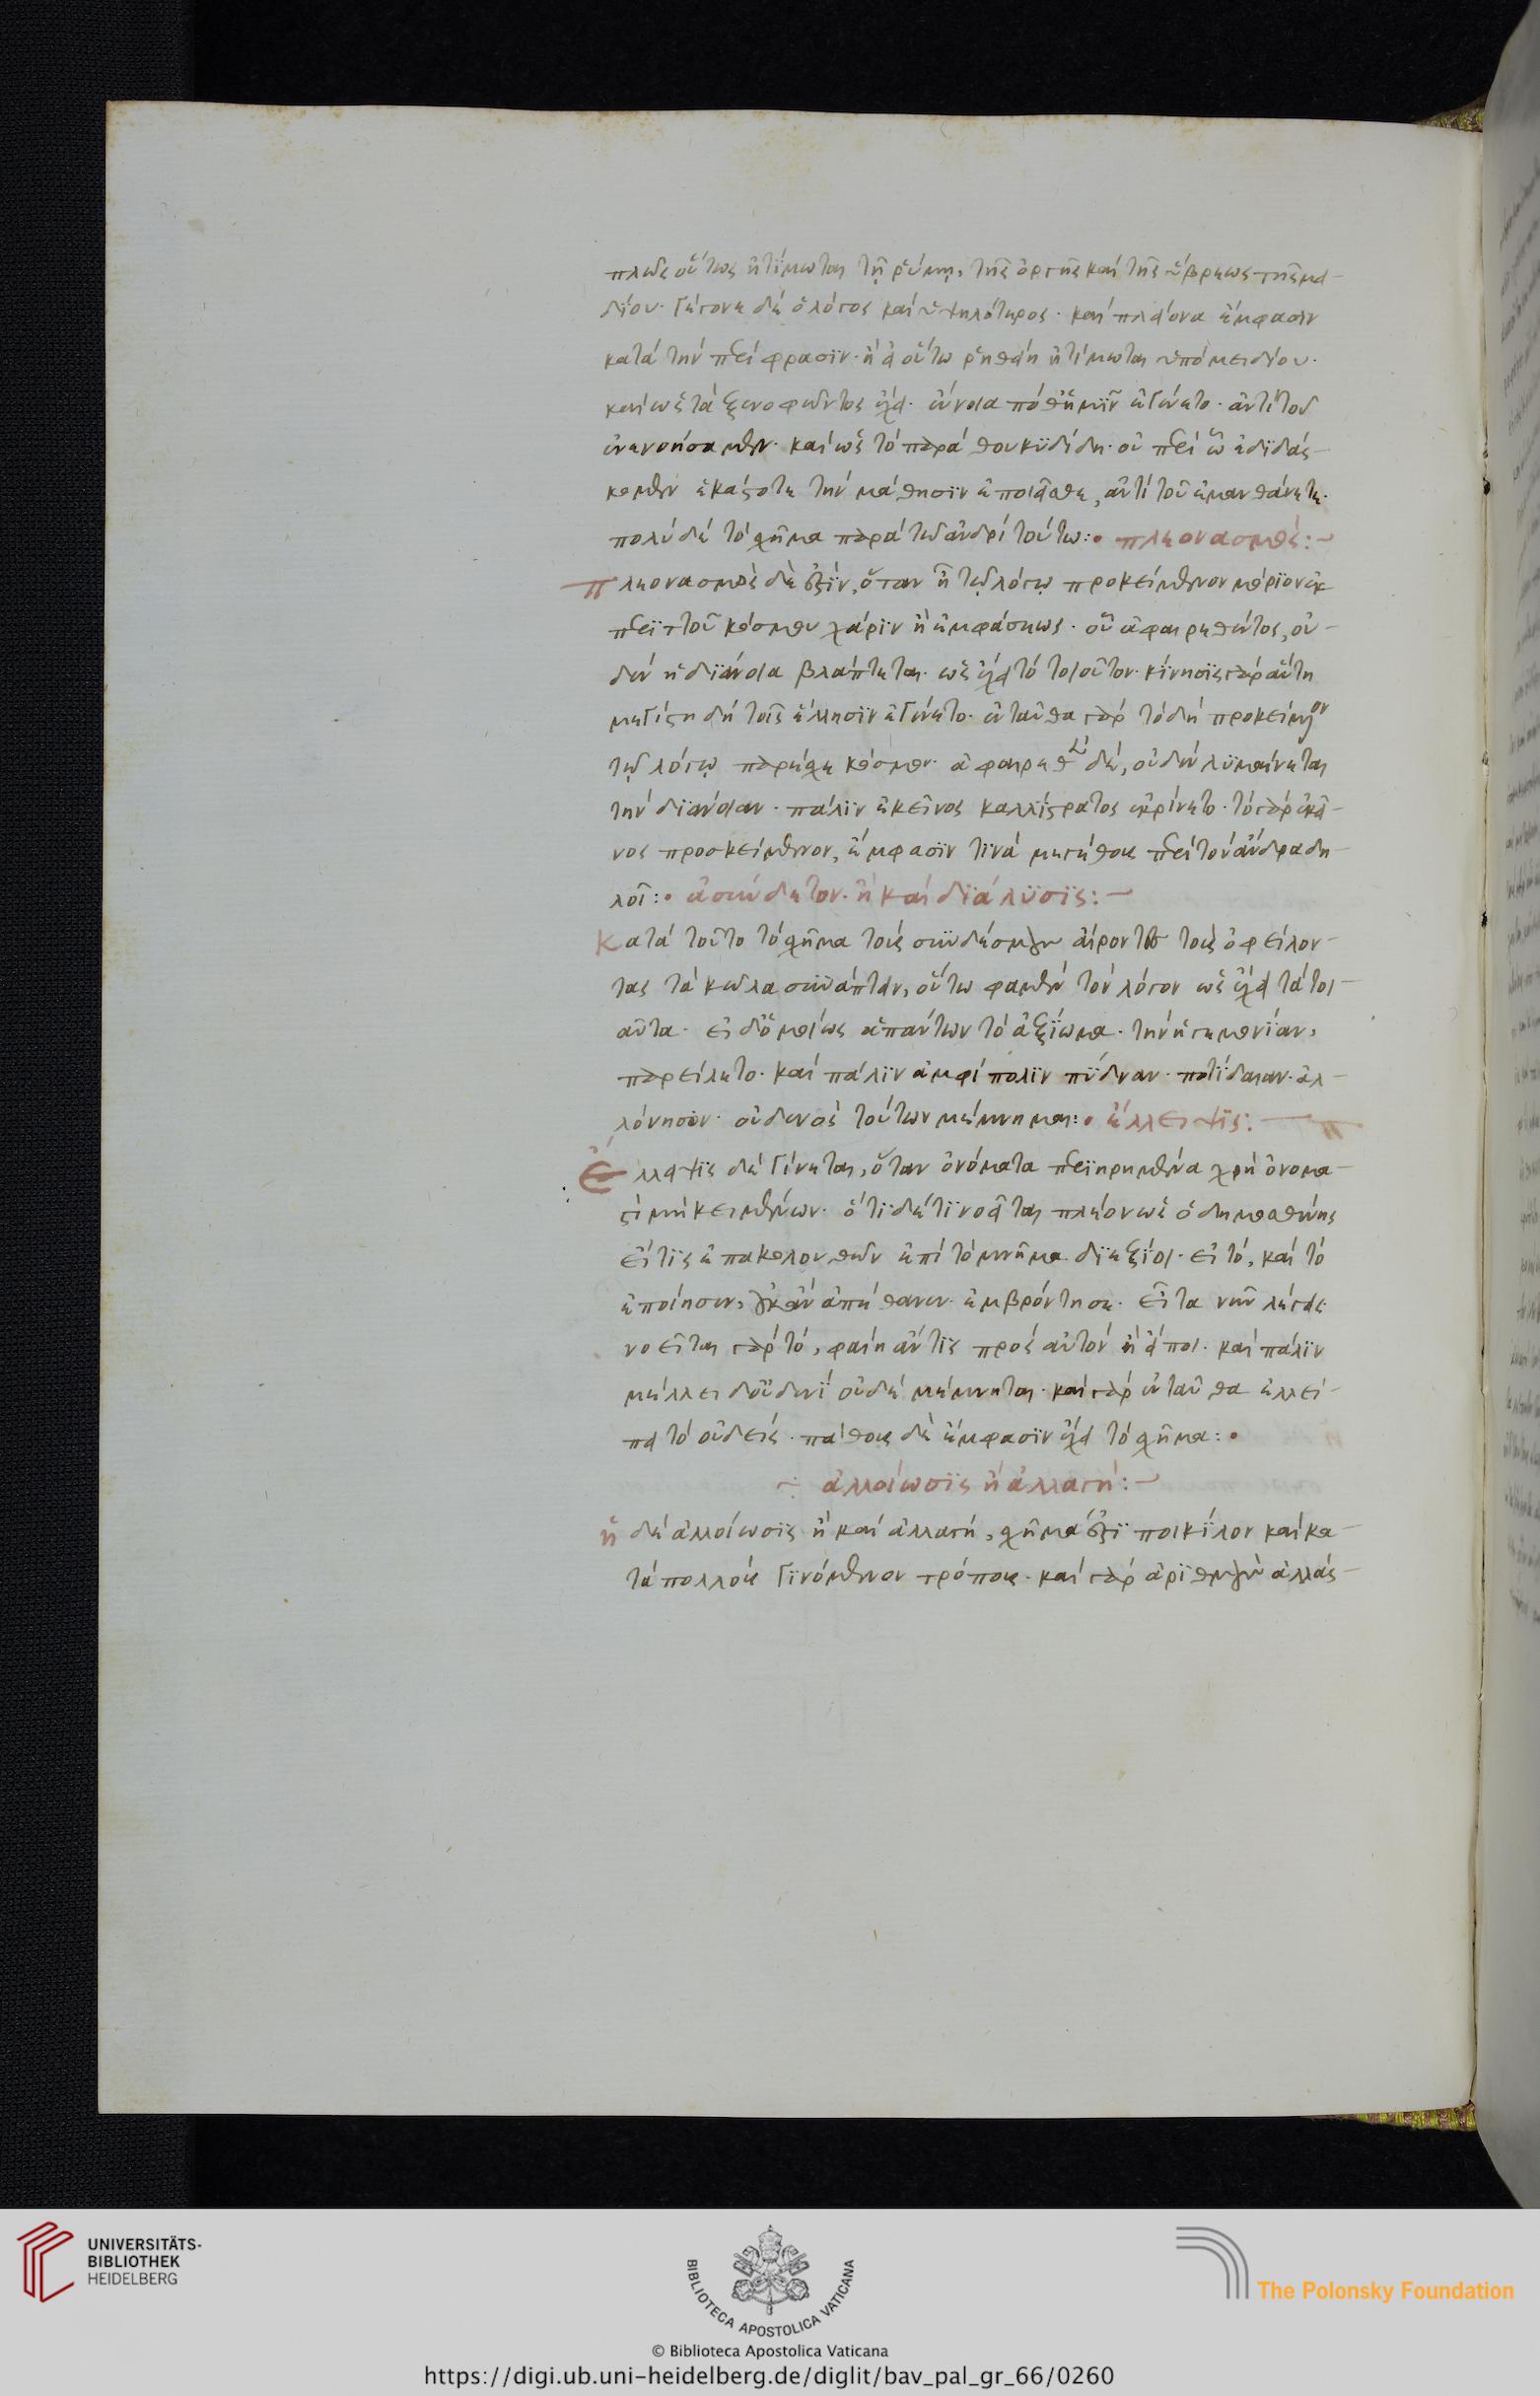 πλῶς οὕτως ἠτίμωται τῇ ῥύμῃ, τῆς ὀργῆς καὶ τῆς ὕβρεως τῆς μει
δίου· γέγονε δὲ ὁ λόγος καὶ ὑψηλότερος· καὶ πλείονα ἔμφασιν
κατὰ τὴν περίφρασιν· ἢ εἰ οὕτω ῥηθείη ἠτίμωται ὑπὸ μειδίου·
καὶ ὡς τὰ ξενοφῶντος ἔχει· ἔννοια πόθ' ἡμῖν ἐγένετο· ἀντὶ τοῦ
ἐνενοήσαμεν· καὶ ὡς τὸ παρὰ θουκυδίδη· οὐ περὶ ὧ ἐδιδάσ-
κομεν ἑκάστοτε τὴν μάθησιν ἐποιεῖσθε, ἀντὶ τοῦ ἐμανθάνετε·
πολὺ δὲ τὸ σχῆμα παρὰ τῶ ἀνδρὶ τούτω:· πλεονασμός:-
Πλεονασμὸς δέ ἐστιν, ὅταν ἢ τῷ λόγῳ προκείμενον μόριον ἐκ
περιττοῦ κόσμου χάριν ἢ ἐμφάσεως· οὗ ἀφαιρεθέντος, οὐ-
δὲν ἡ διάνοια βλάπτεται· ὡς ἔχει τὸ τοιοῦτον· κίνησις γὰρ αὕτη
μεγίστη δὴ τοῖς ἕλλησιν ἐγένετο· ἐνταῦθα γὰρ τὸ δὴ προκείμενον
τῷ λόγῳ παρέχει κόσμον· ἀφαιρεθὲν δέ, οὐδὲν λυμαίνεται
τὴν διάνοιαν· πάλιν ἐκεῖνος καλλίστρατος ἐκρίνετο· τὸ γὰρ ἐκεῖ-
νος προσκείμενον, ἔμφασιν τινὰ μεγέθους περὶ τὸν ἄνδρα δη-
λοῖ:· ἀσύνδετον· ἢ καὶ διάλυσις:-
Κατὰ τοῦτο τὸ σχῆμα τοὺς συνδέσμους αἴροντες τοὺς ὀφείλον-
τας τὰ κῶλα συνάπτειν, οὕτω φαμὲν τὸν λόγον ὡς ἔχει τὰ τοι-
αῦτα· εἰ δ' ὁμοίως ἁπάντων τὸ ἀξίωμα· τὴν ἡγεμονίαν,
παρείλετο· καὶ πάλιν ἀμφίπολιν πύδναν· ποτίδαιαν· ἁλ-
λόνησον· οὐδενὸς τούτων μέμνημαι:· ἔλλειψις:-
Ἔλλειψις δὲ γίνεται, ὅταν ὀνόματα περιῃρημένα χρὴ ὀνομα-
στὶ μὴ κειμένων· ὅτι δέ τι νοεῖται πλέον ὡς ὁ δημοσθένης
εἴ τις ἐπακολουθῶν ἐπὶ τὸ μνῆμα διεξίοι· εἰ τό, καὶ τὸ
ἐποίησεν, οὐκ ἂν ἀπέθανεν· ἐμβρόντητε· εἶτα νῦν λέγεις·
νοεῖται γὰρ τό, φαίη ἄν τις πρὸς αὐτὸν ἢ εἴποι· καὶ πάλιν
μέλλει δ' οὐδενὶ οὐδὲ μέμνηται· καὶ γὰρ ἐνταῦθα ἐλλεί-
πει τὸ οὐδείς· πάθους δὲ ἔμφασιν ἔχει τὸ σχῆμα:·
ἀλλοίωσις ἢ ἀλλαγή:-
Ἡ δὲ ἀλλοίωσις ἢ καὶ ἀλλαγή, σχῆμά ἐστι ποικίλον καὶ κα-
τὰ πολλοὺς γινόμενον τρόπους· καὶ γὰρ ἀριθμοὺς ἀλλάσ-
UNIVERSITÄTS-
BIBLIOTHEK
HEIDELBERG
BIBLIOTECA APOSTOLICA VATICANA
The Polonsky Foundation
© Biblioteca Apostolica Vaticana
https://digi.ub.uni-heidelberg.de/diglit/bav_pal_gr_66/0260